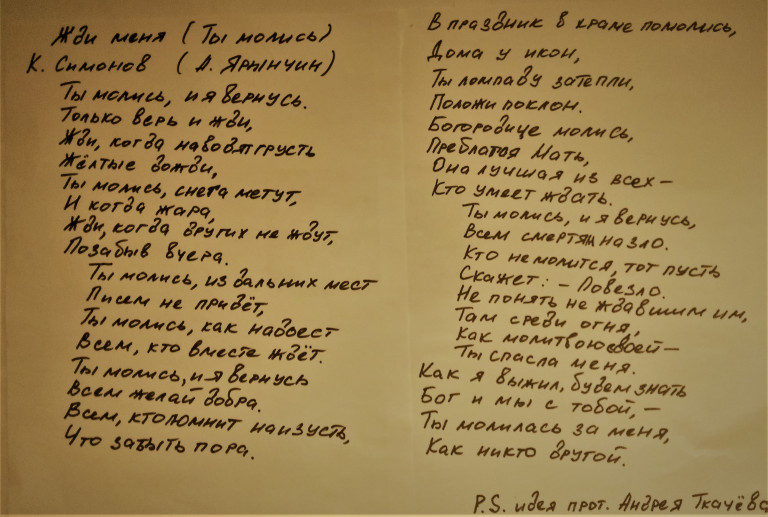 Жди меня (Ты молись)
К. Симонов (А. Ярынчин)
Ты молись, и я вернусь.
Только верь и жди,
Жди, когда наводят грусть
Жёлтые дожди,
Ты молись, снега метут,
И когда жара,
Жди, когда других не ждут,
Позабыв вчера.
Ты молись, из дальних мест
Писем не придёт,
Ты молись, как надоест
Всем, кто вместе ждёт.
Ты молись, и я вернусь
Всем желай добра.
Всем, кто помнит наизусть,
Что забыть пора.
В праздник в храме помолись,
Дома у икон,
Ты лампаду затепли,
Положи поклон.
Богородице молись,
Преблагая Мать,
Она лучшая из всех –
Кто умеет ждать.
Ты молись, и я вернусь,
Всем смертям назло.
Кто не молится, тот пусть
Скажет: – Повезло.
Не понять не ждавшим им,
Там среди огня,
Как молитвою своей –
Ты спасла меня.
Как я выжил, будем знать
Бог и мы с тобой, –
Ты молилась за меня,
Как никто другой.
P.S. идея прот. Андрея Ткачёва